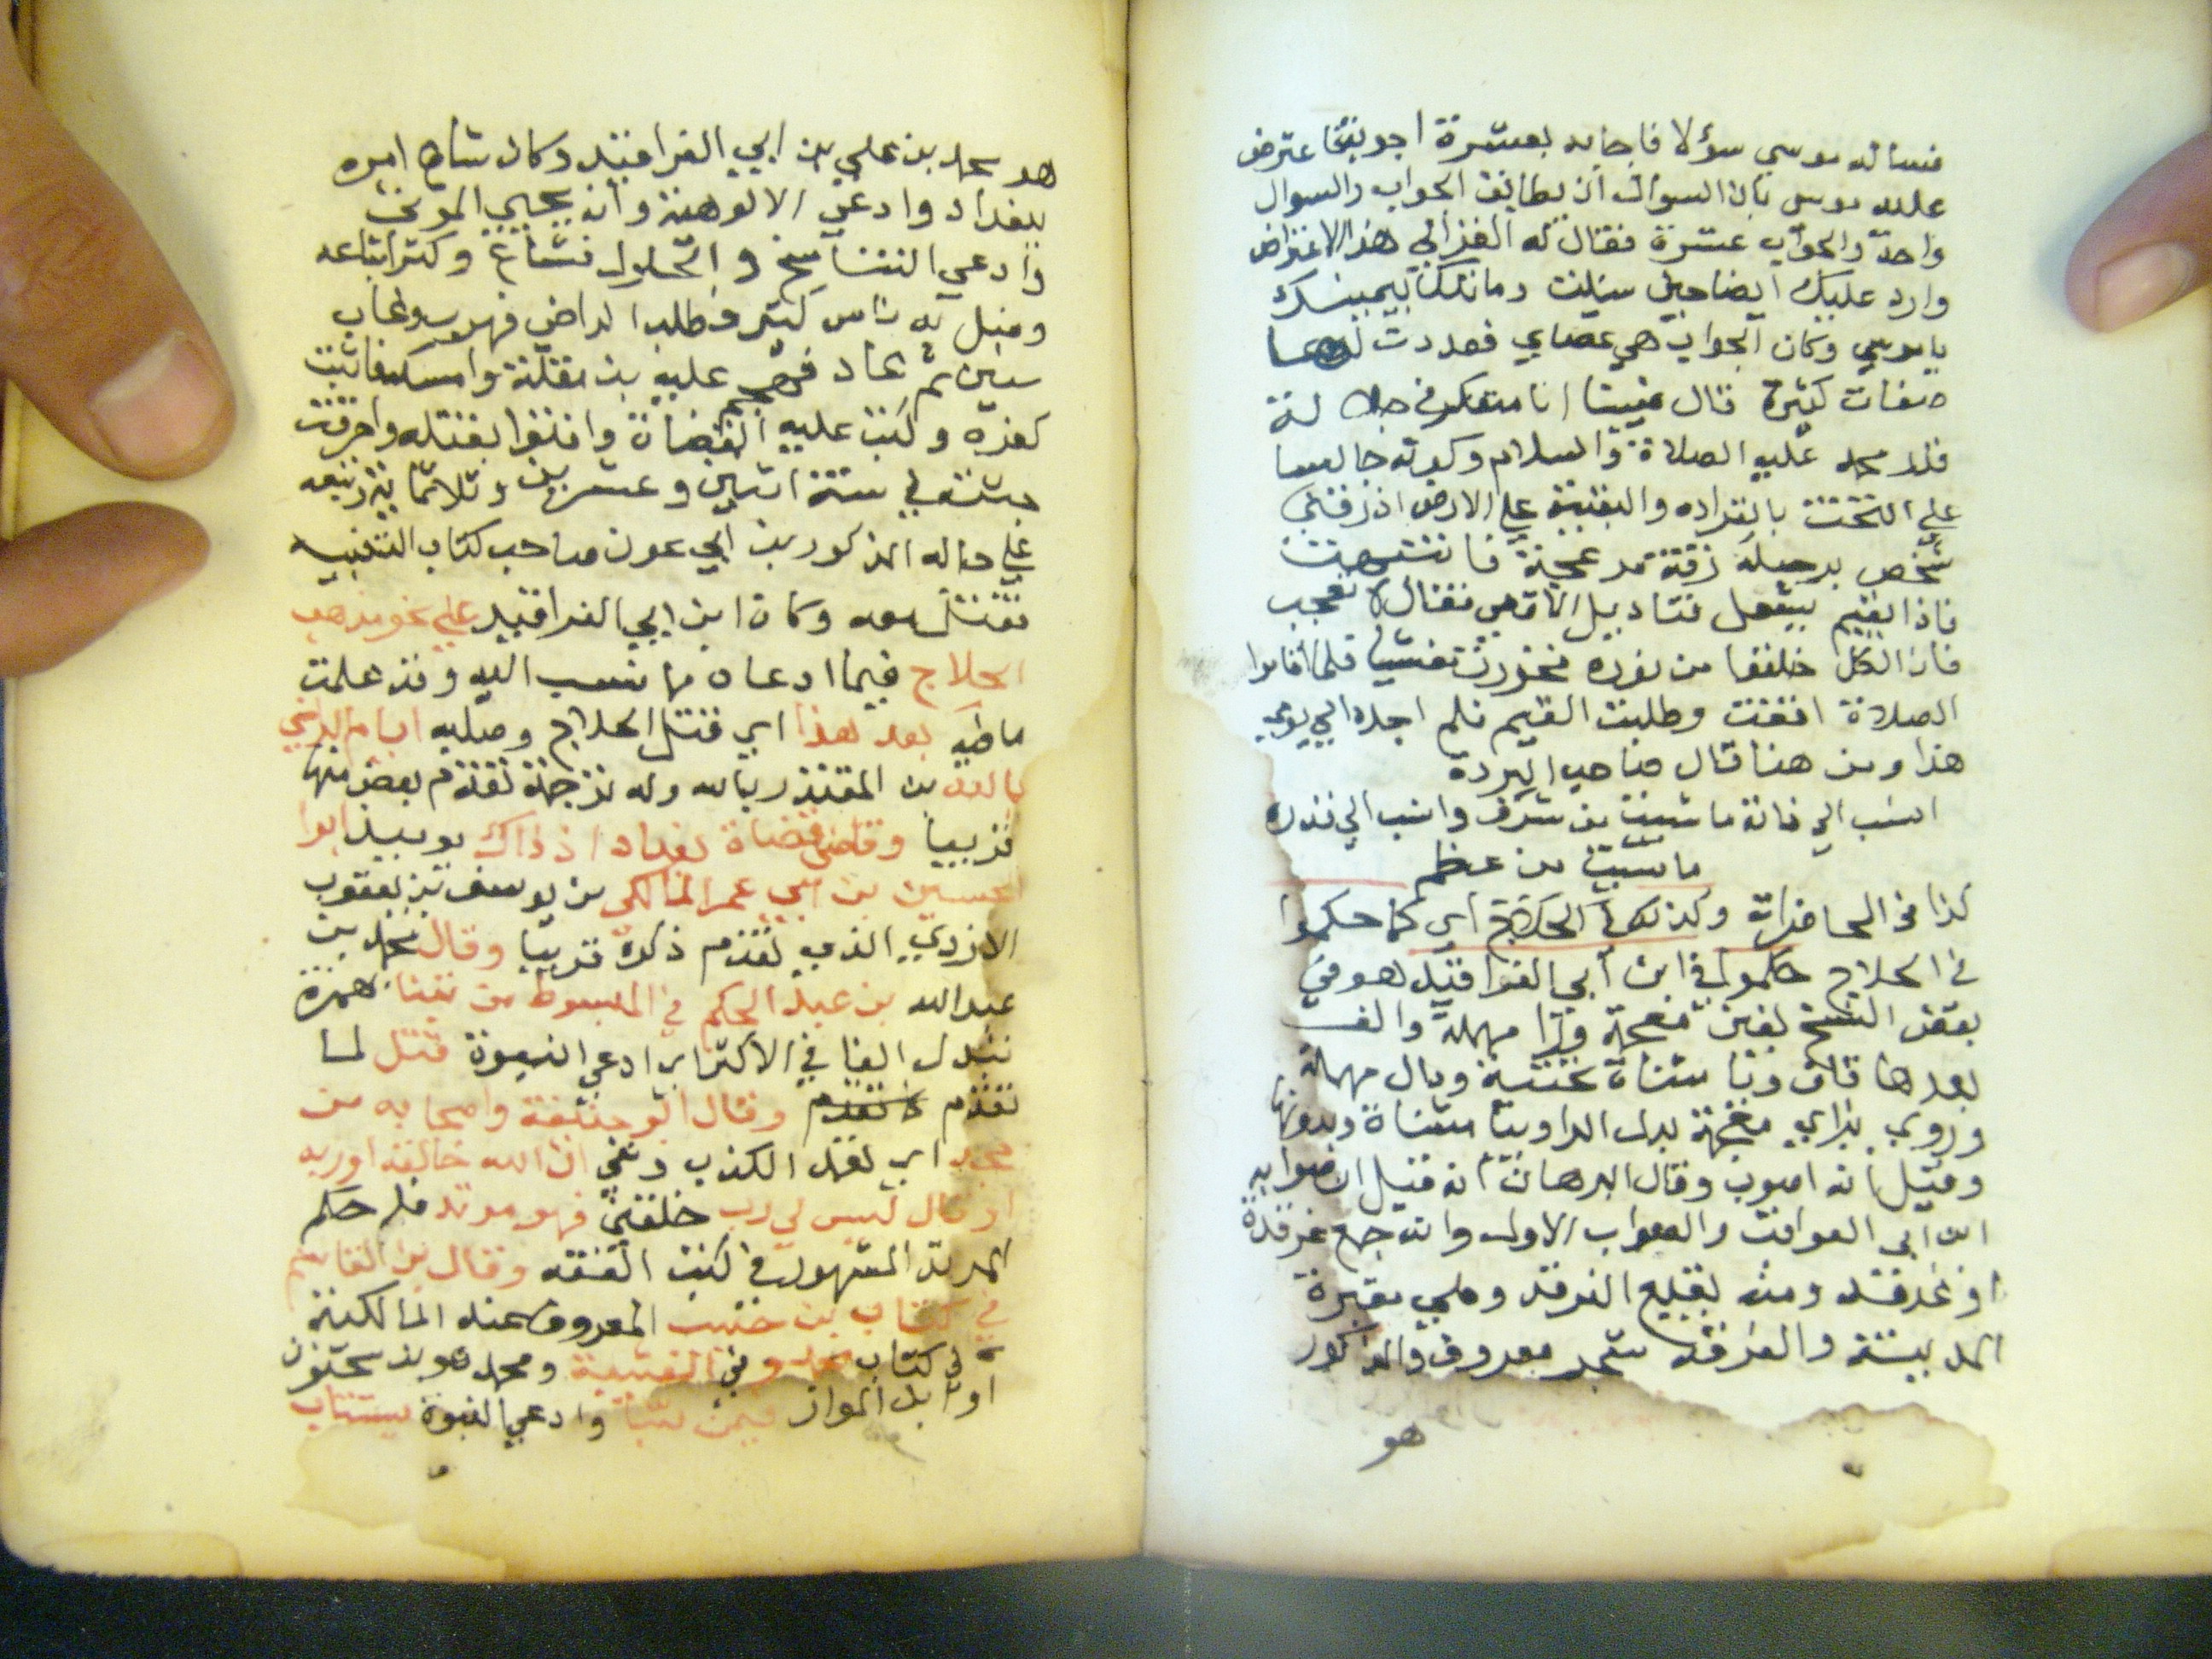 فساله موسي سؤلا فاجابه بعشرة اجوبة فاعترض
عليه موسي بان السوال ان يطابق الجواب والسوال
واحد والجواب عشرة فقال له الغزالي هذا الاعتراض
وارد عليك ايضا حين سئلت وما تلك بيمينك
يا موسي وكان الجواب هي عصاي فعددت لها
صفات كثيرة قال فبينا انا متفكر في جلالة
قدر محمد عليه الصلاة والسلام وكونه جالسا
علي التخت بانفراده والبقية علي الارض اذ زفني
شخص برجله زقة مزعجة فانتبهت
فاذا القيم يشعل قناديل الاقصي فقال لا تعجب
فان الكل خلقوا من نوره فخررت مغشيا فلما اقاموا
الصلاة افقت وطلبت القيم فلم اجده الي يومي
هذا ومن هنا قال صاحب البردة
انسب الي ذاته ما شيت من شرف وانسب الي قدره
ما شيت من عظم
كذا في المحاضرات وكذلك الحلاج اي كما حكموا
في الحلاج حكموا في ابن ابي الغراقيد هو في
بعض النسخ بغين معجمة ورا مهملة والف
بعدها قاف ويا مثناة تحتية ودال مهملة
وروي بزاي معجمة بدل الرا وبيا مثناة وبدونها
وقيل انه اصوب وقال البرهان انه قيل ان صوابه
ابن ابي العواقب والصواب الاول وانه جمع غرقدة
او غرقد ومنه بقيع الغرقد وهي مقبرة
المدينة والغرقد شجر معروف والمذكور
هو
هو محمد بن علي بن ابي الغراقيد وكان شاع امره
ببغداد وادعي الالوهية وانه يحيي الموتي
وادعي التناسخ والحلول فشاع وكثر اتباعه
وميل له ناس كثير وطلبه الراضي فهرب وغاب
سنين ثم عاد فهجم عليه بن مقلة وامسكه فاثبت
كفره وكتب عليه القضاة وافتوا بقتله واحرقت
جثته في سنة اثنين وعشرين وثلاثمائة وتبعه
علي حاله المذكور بن ابي عون صاحب كتاب التشبيه
فقتل معه وكان ابن ابي الغراقيد علي نحو مذهب
الحلاج فيما ادعاه مما نسب اليه وقد علمت
ما فيه بعد هذا اي قتل الحلاج وصلبه ايام الراضي
بالله بن المقتدر بالله وله ترجمة تقدم بعض منها
قريبا وقاضي قضاة بغداد اذ ذاك يوميذ ابوا
الحسين بن ابي عمر المالكي بن يوسف بن يعقوب
الازدي الذي تقدم ذكره قريبا وقال محمد بن
عبد الله بن عبد الحكم في المبسوط من تنبا بهمزة
تبدل الفا في الاكثر اي ادعي النبوة قتل لما
تقدم وقال ابو حنيفة واصحابه من
جحد اي تعمد الكذب ونفي ان الله خالقه او ربه
او قال ليس لي رب خلقني فهو مرتد فله حكم
المرتد المشهور في كتب الفقه وقال بن القاسم
في كتاب بن حبيب المعروف عند المالكية
في كتاب محمد وفي العتبية ومحمد هو بن سحنون
او ابن المواز فيمن تنبا وادعي النبوة يستتاب